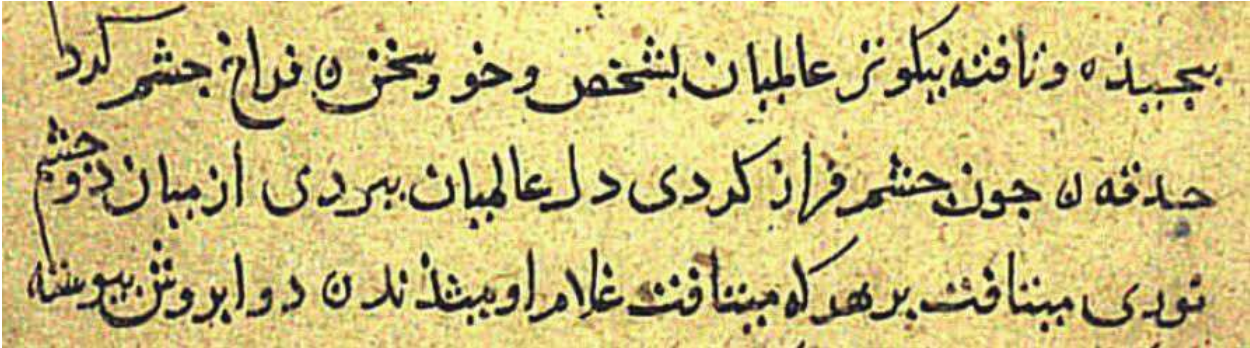 بیجیذه و تافته نیکوتر عالمیان بشخص و خو و سخن ن فراخ جشم کرد
حدقه ن جون جشم فراز کردی دل عالمیان ببردی از میان دو جشم
نوری میتافت بر هر که میتافت غلام او میشذند ن دو ابروش بیوسته